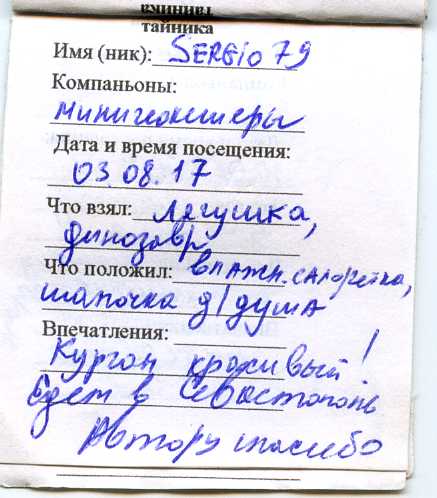 тайника
Имя (ник): SERGIO 79
Компаньоны:
минигеокешеры
Дата и время посещения:
03.08.17
Что взял: лягушка,
динозавр
Что положил: влажн. салфетка,
шапочка д/душа
Впечатления:
Курган красивый!
Едем в Севастополь
Автору спасибо